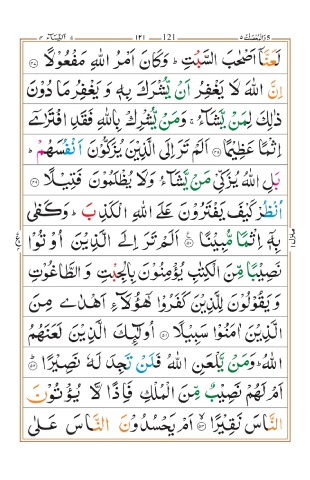 النسآء ٤ ١٢١ 121 والمحصنت ٥
لَعَنَّاۤ اَصْحٰبَ السَّبْتِ ؕ وَكَانَ اَمْرُ اللّٰهِ مَفْعُوْلًا ﴿۴۷﴾
اِنَّ اللّٰهَ لَا يَغْفِرُ اَنْ يُّشْرَكَ بِهٖ وَ يَغْفِرُ مَا دُوْنَ
ذٰلِكَ لِمَنْ يَّشَآءُ ۚ وَمَنْ يُّشْرِكْ بِاللّٰهِ فَقَدِ افْتَرٰۤى
اِثْمًا عَظِيْمًا ﴿۴۸﴾ اَلَمْ تَرَ اِلَى الَّذِيْنَ يُزَكُّوْنَ اَنْفُسَهُمْ ؕ
بَلِ اللّٰهُ يُزَكِّىْ مَنْ يَّشَآءُ وَلَا يُظْلَمُوْنَ فَتِيْلًا ﴿۴۹﴾
اُنْظُرْ كَيْفَ يَفْتَرُوْنَ عَلَى اللّٰهِ الْكَذِبَ ؕ وَكَفٰى
بِهٖۤ اِثْمًا مُّبِيْنًا ﴿۵۰﴾ اَلَمْ تَرَ اِلَى الَّذِيْنَ اُوْتُوْا
نَصِيْبًا مِّنَ الْكِتٰبِ يُؤْمِنُوْنَ بِالْجِبْتِ وَ الطَّاغُوْتِ
وَيَقُوْلُوْنَ لِلَّذِيْنَ كَفَرُوْا هٰٓؤُلَآءِ اَهْدٰى مِنَ
الَّذِيْنَ اٰمَنُوْا سَبِيْلًا ﴿۵۱﴾ اُولٰٓئِكَ الَّذِيْنَ لَعَنَهُمُ
اللّٰهُ ؕ وَمَنْ يَّلْعَنِ اللّٰهُ فَلَنْ تَجِدَ لَهٗ نَصِيْرًا ﴿۵۲﴾
اَمْ لَهُمْ نَصِيْبٌ مِّنَ الْمُلْكِ فَاِذًا لَّا يُؤْتُوْنَ
النَّاسَ نَقِيْرًا ﴿۵۳﴾ اَمْ يَحْسُدُوْنَ النَّاسَ عَلٰى